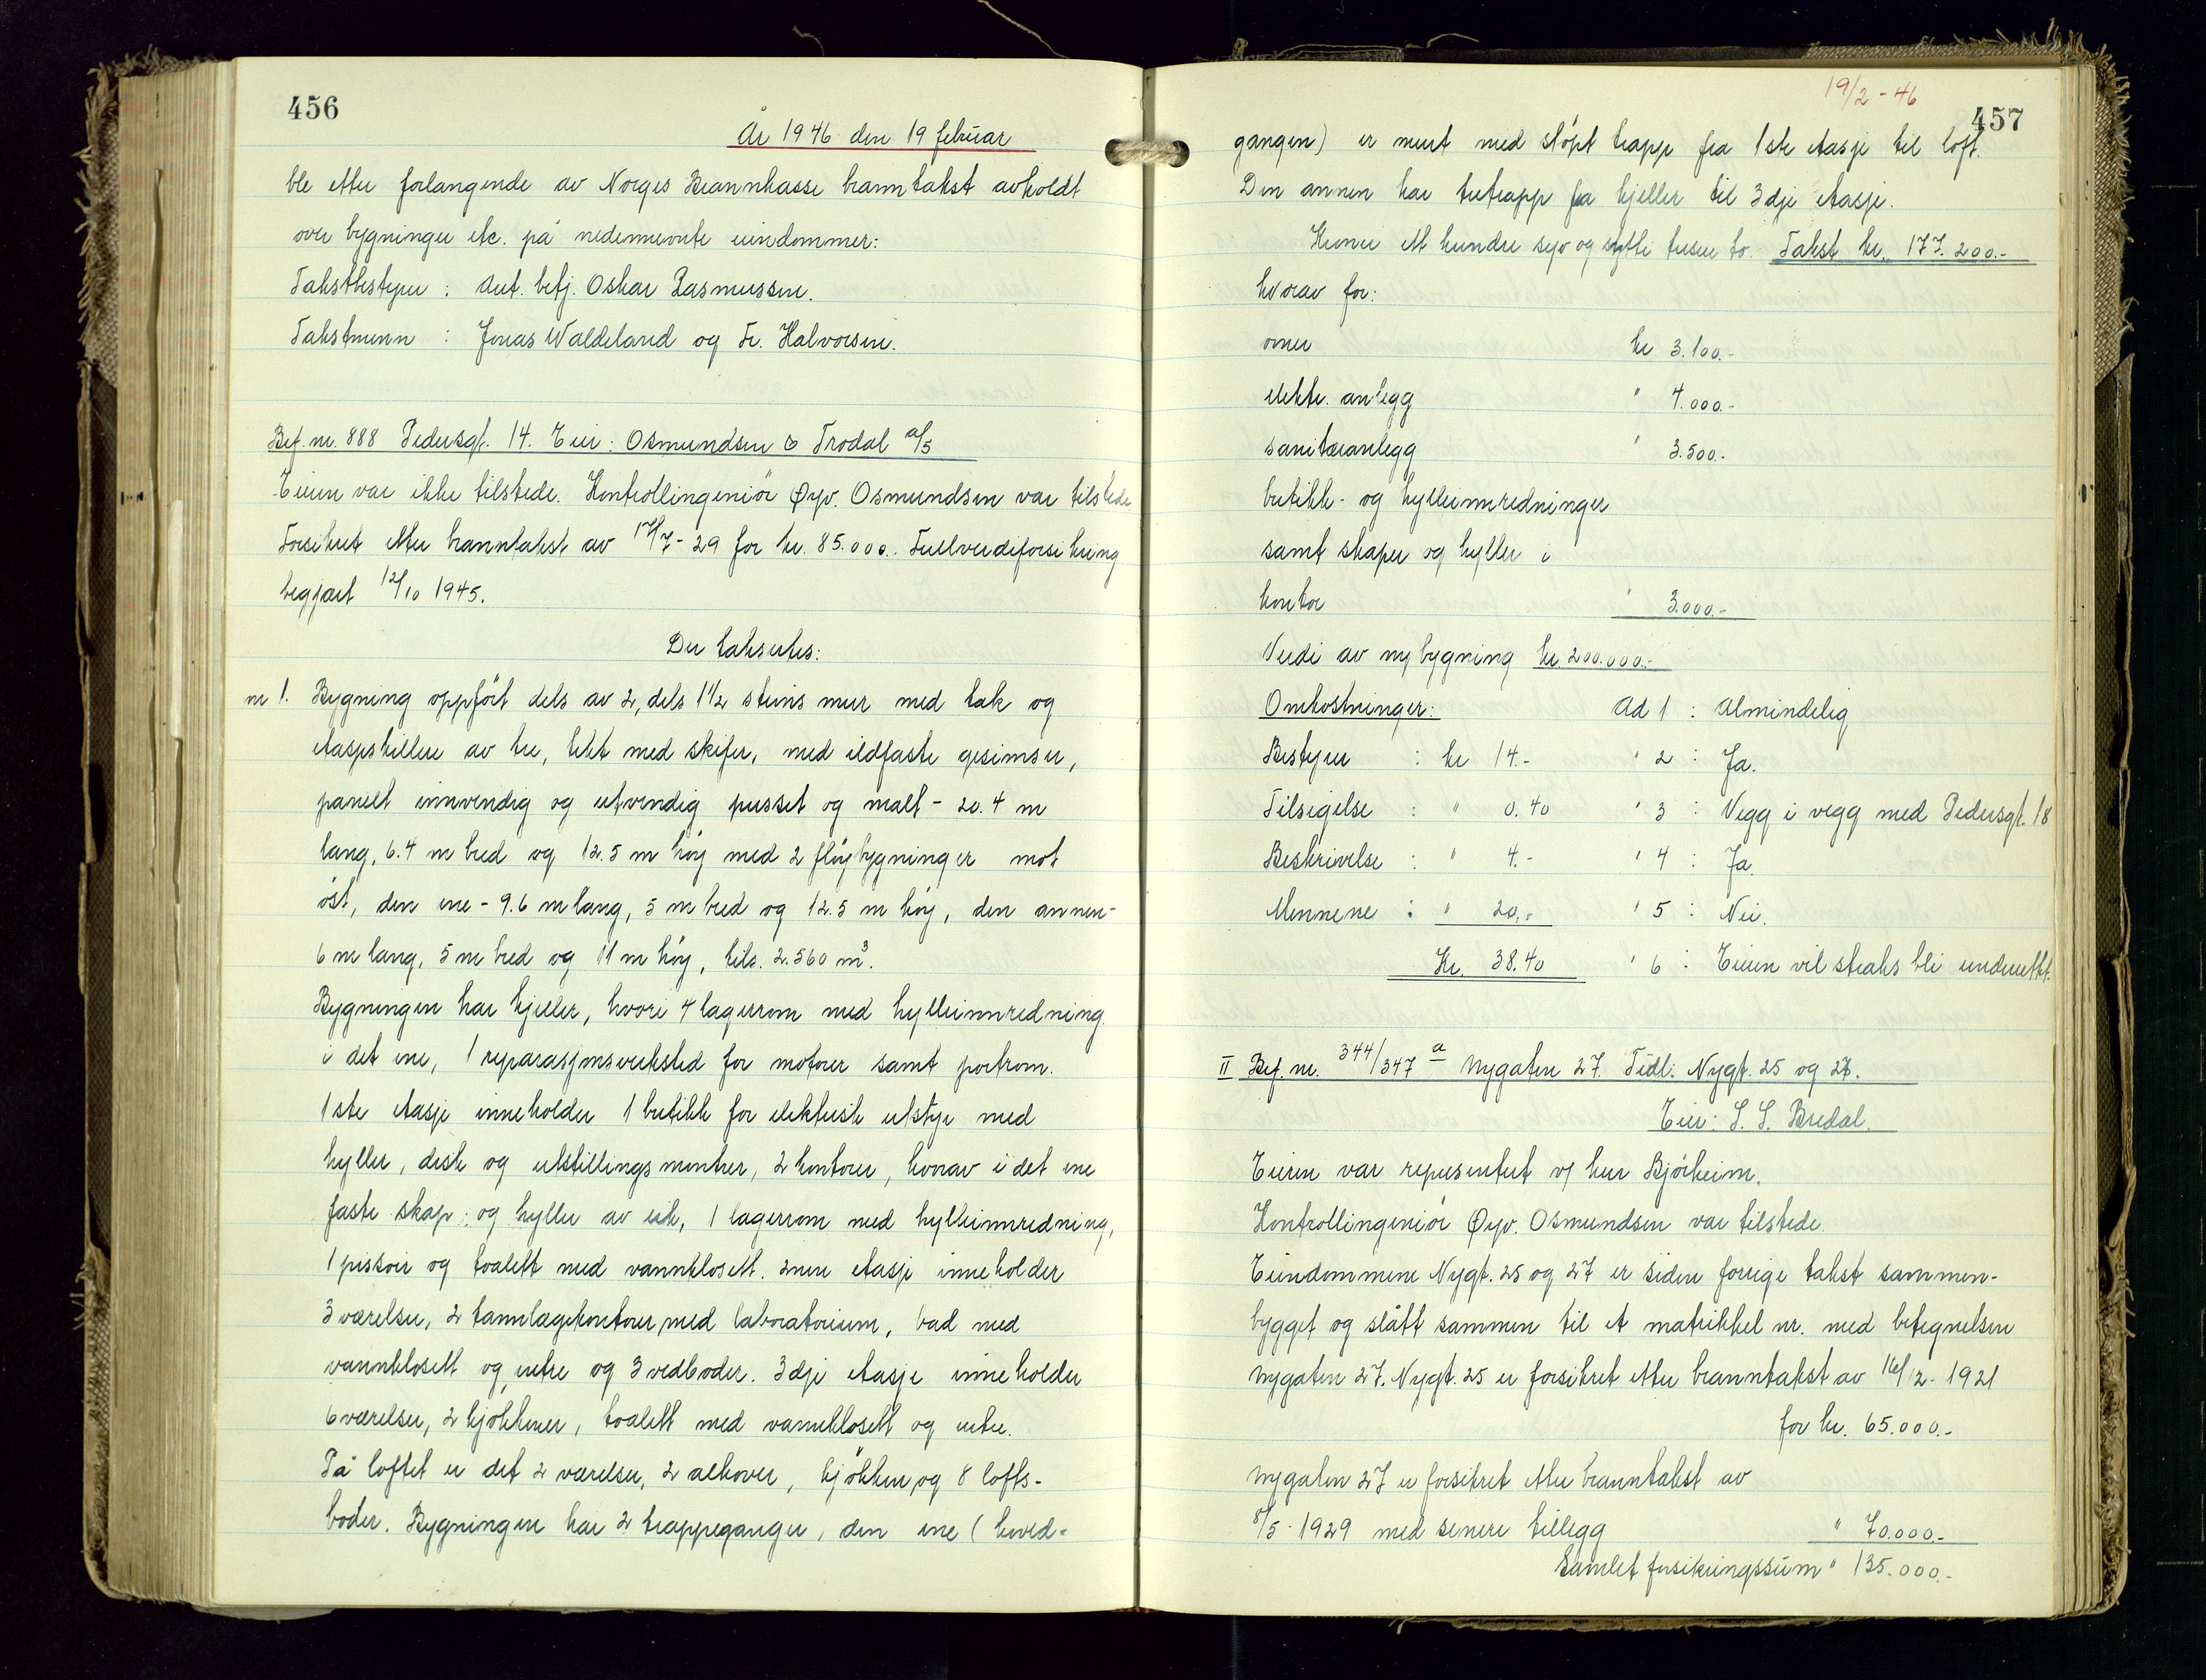 456
År 1946 den 19 februar
ble etter forlangende av Norges Brannkasse branntakst avholdt
over bygninger etc. på nedennevnte eiendommer:
Takstbestyrer : Aut. betj. Oskar Rasmussen.
Takstmenn : Jonas Waldeland og Fr. Halvorsen.
Bef. nr. 888 Pedersgt. 14. Eier: Osmundsen & Trodal a/s
Eieren var ikke tilstede. Kontrollingeniør Øyv. Osmundsen var tilstede
Forsikret etter branntakst av 17/7-29 for kr. 85.000. Fullverdiforsikring
begjært 12/10 1945.
Der takseres:
nr 1. Bygning oppført dels av 2, dels 1 1/2 steins mur med tak og
etasjeskiller av tre, tekt med skifer, med ildfaste gesimser,
panelt innvendig og utvendig pusset og malt - 20.4 m
lang, 6.4 m bred og 12.5 m høy med 2 fløybygninger mot
øst, den ene - 9.6 m lang, 5 m bred og 12.5 m høy, den annen-
6 m lang, 5 m bred og 11 m høy, tils. 2.560 m³.
Bygningen har kjeller, hvori 4 lagerrom med hylleinnredning
i det ene, 1 reparasjonsverksted for motorer samt portrom.
1ste etasje inneholder 1 butikk for elektrisk utstyr med
hyller, disk og utstillingsmontrer, 2 kontorer, hvorav i det ene
faste skap: og hyller av eik, 1 lagerrom med hylleinnredning,
1 pissoir og toalett med vannklosett. 2nen etasje inneholder
3 værelser, 2 tannlægekontorer med laboratorium, bad med
vannklosett og entre og 3 vedboder. 3dje etasje inneholder
6 værelser, 2 kjøkkener, toalett med vannklosett og entre.
På loftet er det 2 værelser, 2 alkover, kjøkken og 8 lofts-
boder. Bygningen har 2 trappeganger, den ene (hoved-
19/2-46
457
gangen) er murt med støpt trapp fra 1ste etasje til loft.
Den annen har tretrapp fra kjeller til 3dje etasje.
Kroner ett hundre syv og sytti tusen to. Takst kr. 177.200.-
hvorav for:
ovner kr 3.100.-
elektr. anlegg " 4.000.-
sanitæranlegg " 3.500.-
butikk- og hylleinnredninger
samt skaper og hyller i
kontor " 3.000.-
Verdi av nybygning kr 200.000.-
Omkostninger: Ad 1 : Almindelig
Bestyrer : kr 14.- " 2 : Ja.
Tilsigelse : " 0.40 " 3 : Vegg i vegg med Pedersgt. 18
Beskrivelse : " 4.- " 4 : Ja.
Mennene : " 20.- " 5 : Nei.
Kr. 38.40 " 6 : Eieren vil straks bli underrettet.
II Bef. nr. 344/347 a Nygaten 27. Tidl. Nygt. 25 og 27.
Eier: S. S. Bredal.
Eieren var representert v/ herr Bjørheim.
Kontrollingeniør Øyv. Osmundsen var tilstede.
Eiendommene Nygt. 25 og 27 er siden forrige takst sammen-
bygget og slått sammen til et matrikkel nr. med betegnelsen
Nygaten 27. Nygt. 25 er forsikret etter branntakst av 16/12-1921
for kr. 65.000.-
Nygaten 27 er forsikret etter branntakst av
8/5-1929 med senere tillegg " 70.000.-
Samlet forsikringssum " 135.000.-